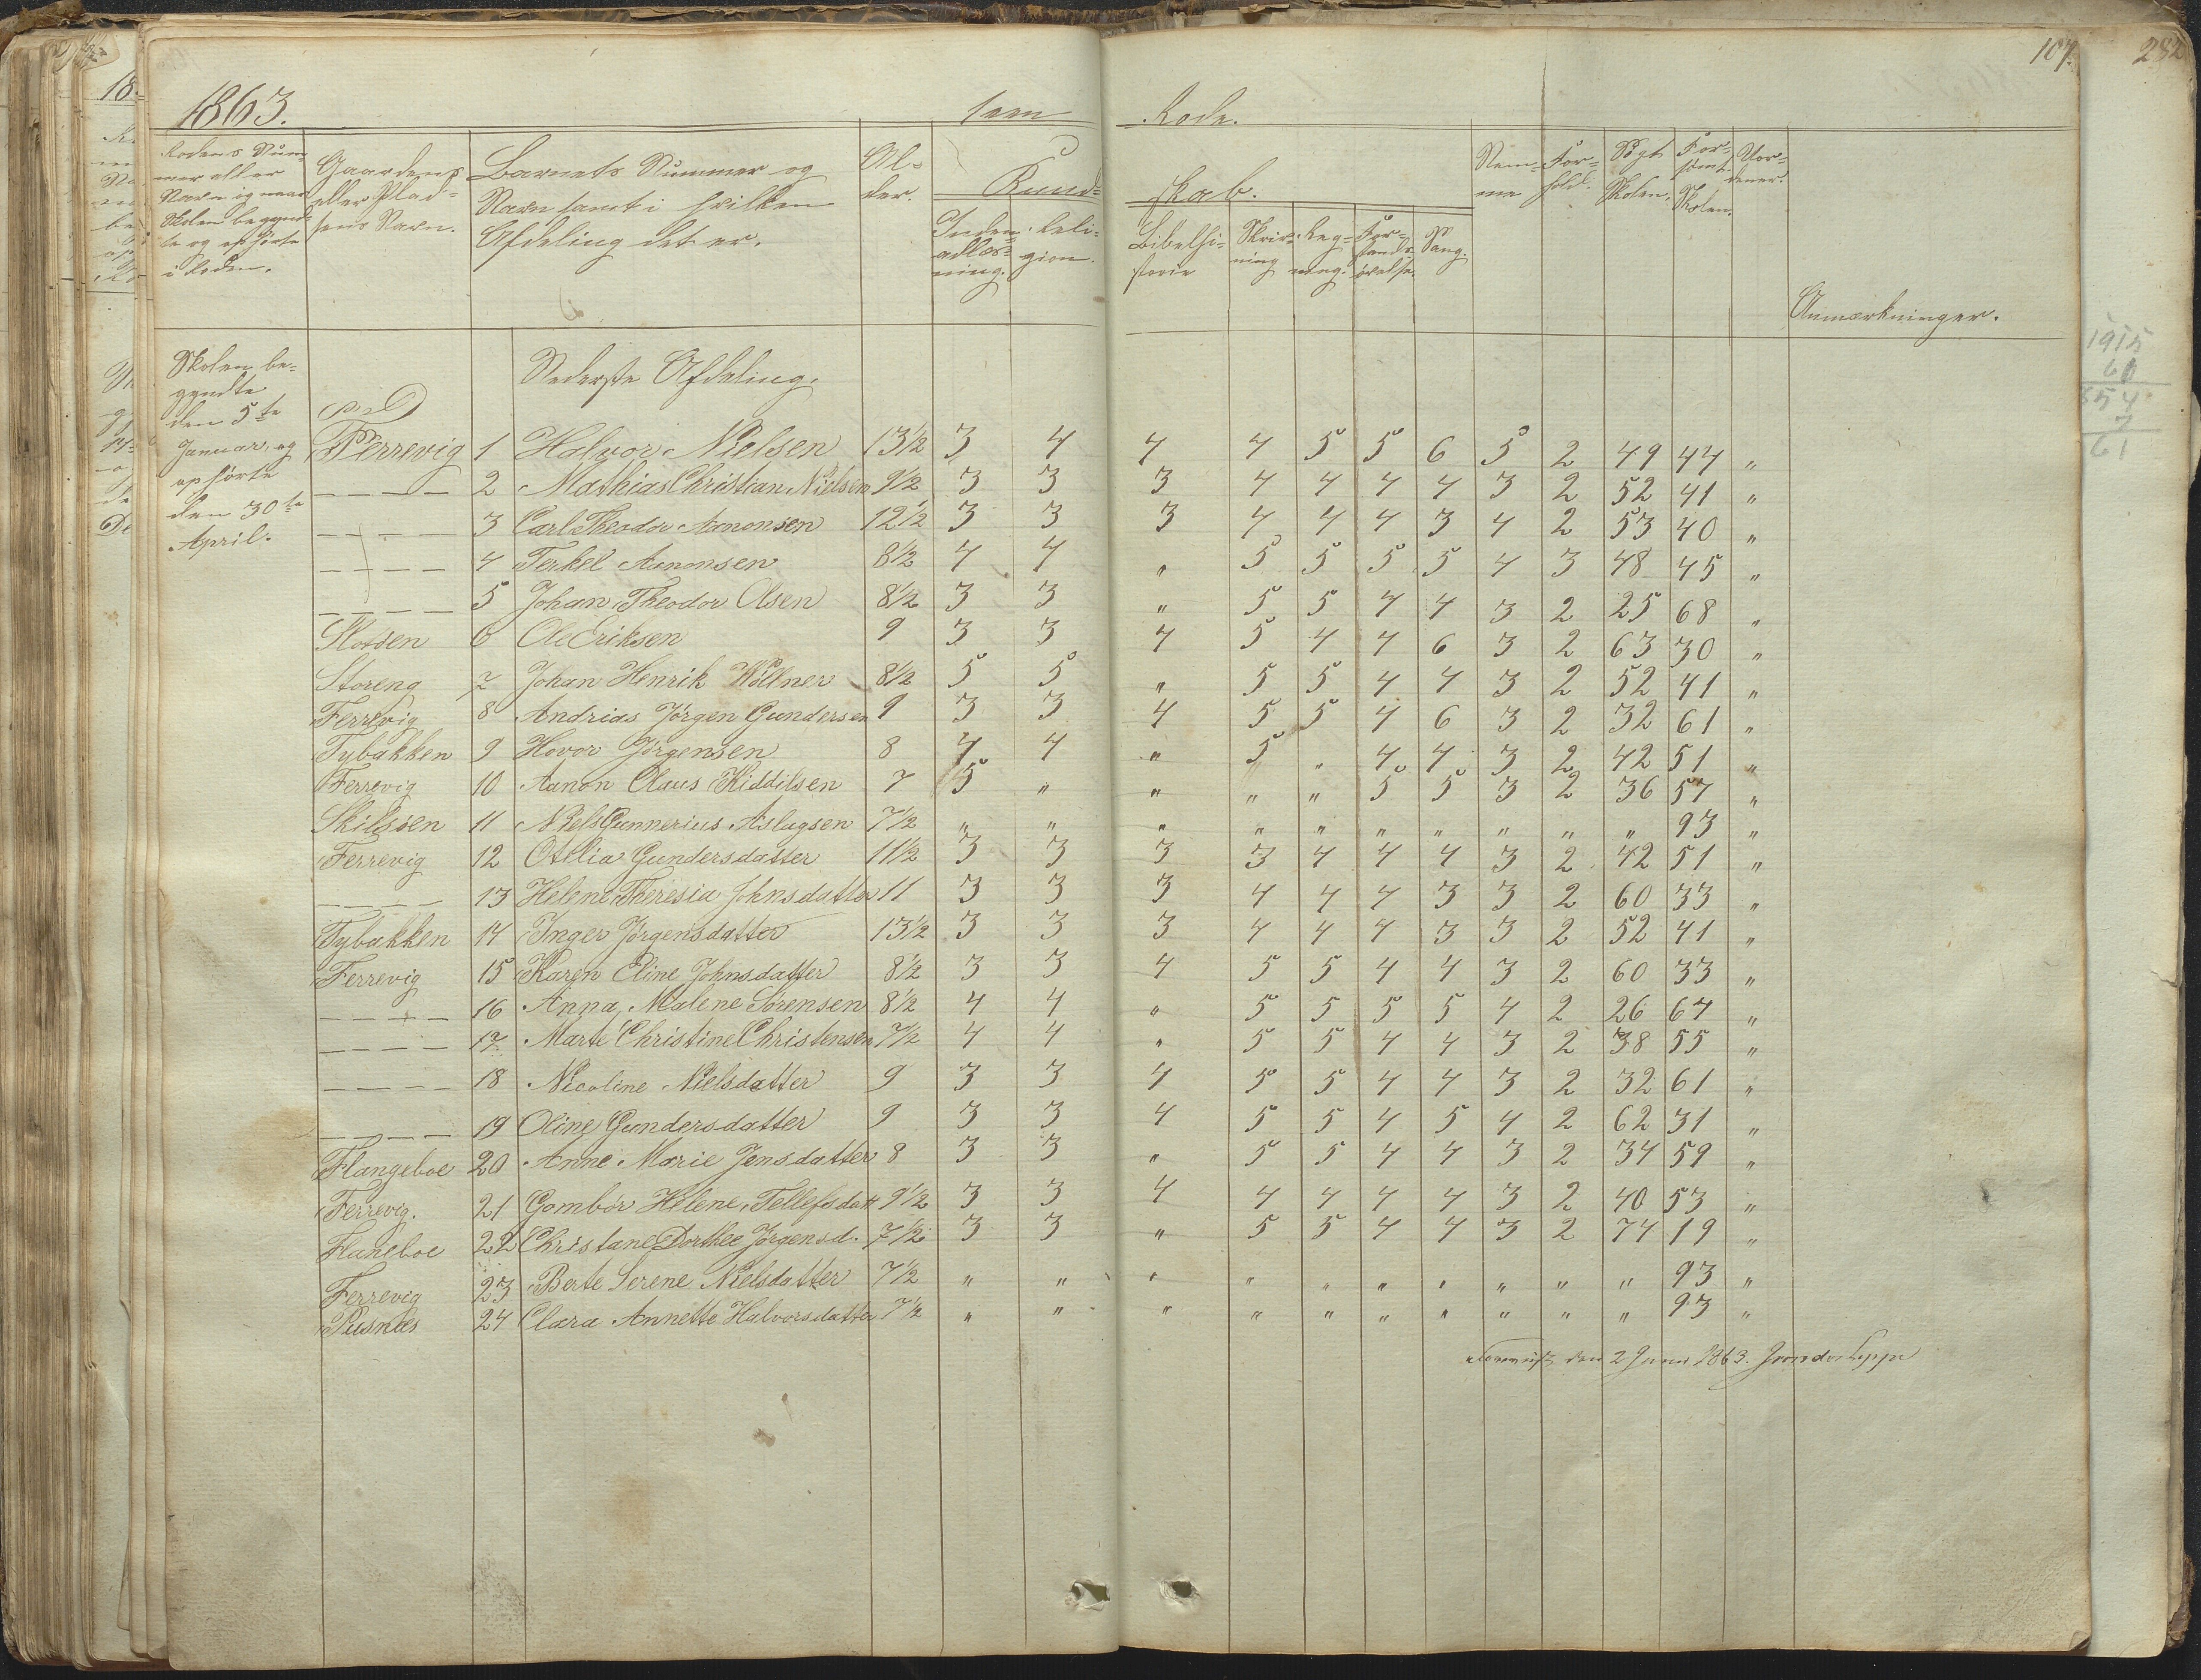 107.
282
1863.
1ven Rode.
Rodens Num-
mer eller
Navn ig naar
Skolen begynd-
te og ophörte
i Roden.
Gaardens
eller Plad-
sens Navn.
Barnets Nummer og
Navn samt i hvilken
Afdeling det er.
Al-
der.
Kund-
skab.
Inden-
adlæs-
ning.
Reli-
gion.
Bibelhi-
storie
Skriv-
ning
Reg-
ning.
For-
stands-
øvelse.
Sang.
Nem-
me
For-
hold.
Sögt
Skolen.
For-
sömt
Skolen.
Anmærkninger.
Skolen be-
gyndte
den 5te
Januar, og
ophörte
den 30te
April.
Nederste Afdeling.
Ferrevig 1 Halvor Nielsen 13½ 3 4 4 4 5 5 6 5 2 49 44 "
— — — — 2 Mathias Christian Nielsen 9½ 3 3 3 4 4 4 4 3 2 52 41 "
— — — — 3 Carl Theodor Aanonsen 12½ 3 3 3 4 4 4 3 4 2 53 40 "
— — — — 4 Terkel Aanonsen 8½ 4 4 " 5 5 5 5 4 3 48 45 "
— — — — 5 Johan Theodor Olsen 8½ 3 3 " 5 5 4 4 3 2 25 68 "
6 Ole Eriksen 9 3 3 4 5 4 4 6 3 2 63 30 "
Storeng 7 Johan Henrik Wöllner 8½ 5 5 " 5 5 4 4 3 2 52 41 "
Ferrevig 8 Andrias Jörgen Gundersen 9 3 3 4 5 5 4 6 3 2 32 61 "
Tybakken 9 Hovor Jörgensen 8 4 4 " 5 " 4 4 3 2 42 51 "
Ferrevig 10 Aanon Olaus Kiddilsen 7 5 " " " " 5 5 3 2 36 57 "
Skilsöen 11 Niels Gunnerius Aslagsen 7½ " " " " " " " " " " 93 "
Ferrevig 12 Otelia Gundersdatter 11½ 3 3 3 3 4 4 4 3 2 42 51 "
— — — — 13 Helene Theresia Johnsdatter 11 3 3 3 4 4 4 3 3 2 60 33 "
Tybakken 14 Inger Jörgensdatter 13½ 3 3 3 4 4 4 3 3 2 52 41 "
Ferrevig 15 Karen Eline Johnsdatter 8½ 3 3 4 5 5 4 4 3 2 60 33 "
— — — — 16 Anna Malene Sörensen 8½ 4 4 " 5 5 5 5 4 2 26 67 "
— — — — 17 Marte Christine Christensen 7½ 4 4 " 5 5 4 4 3 2 38 55 "
— — — — 18 Nicoline Nielsdatter 9 3 3 4 5 5 4 4 3 2 32 61 "
— — — — 19 Oline Gundersdatter 9 3 3 4 5 5 4 5 4 2 62 31 "
Flangeboe 20 Anne Marie Jensdatter 8 3 3 " 5 5 4 4 3 2 34 59 "
Ferrevig. 21 Gombör Helene Tellefsdatt 9½ 3 3 4 4 4 4 4 3 2 40 53 "
Flaneboe 22 Christane Dorthee Jörgensd. 7½ 3 3 " 5 5 4 4 3 2 74 19 "
Ferrevig 23 Berte Serene Nielsdatter 7½ " " " " " " " " " " 93 "
Pusnæs 24 Clara Annette Halvorsdatter 7½ " " " " " " " " " " 93 "
den 2 Juni 1863.
1915
60